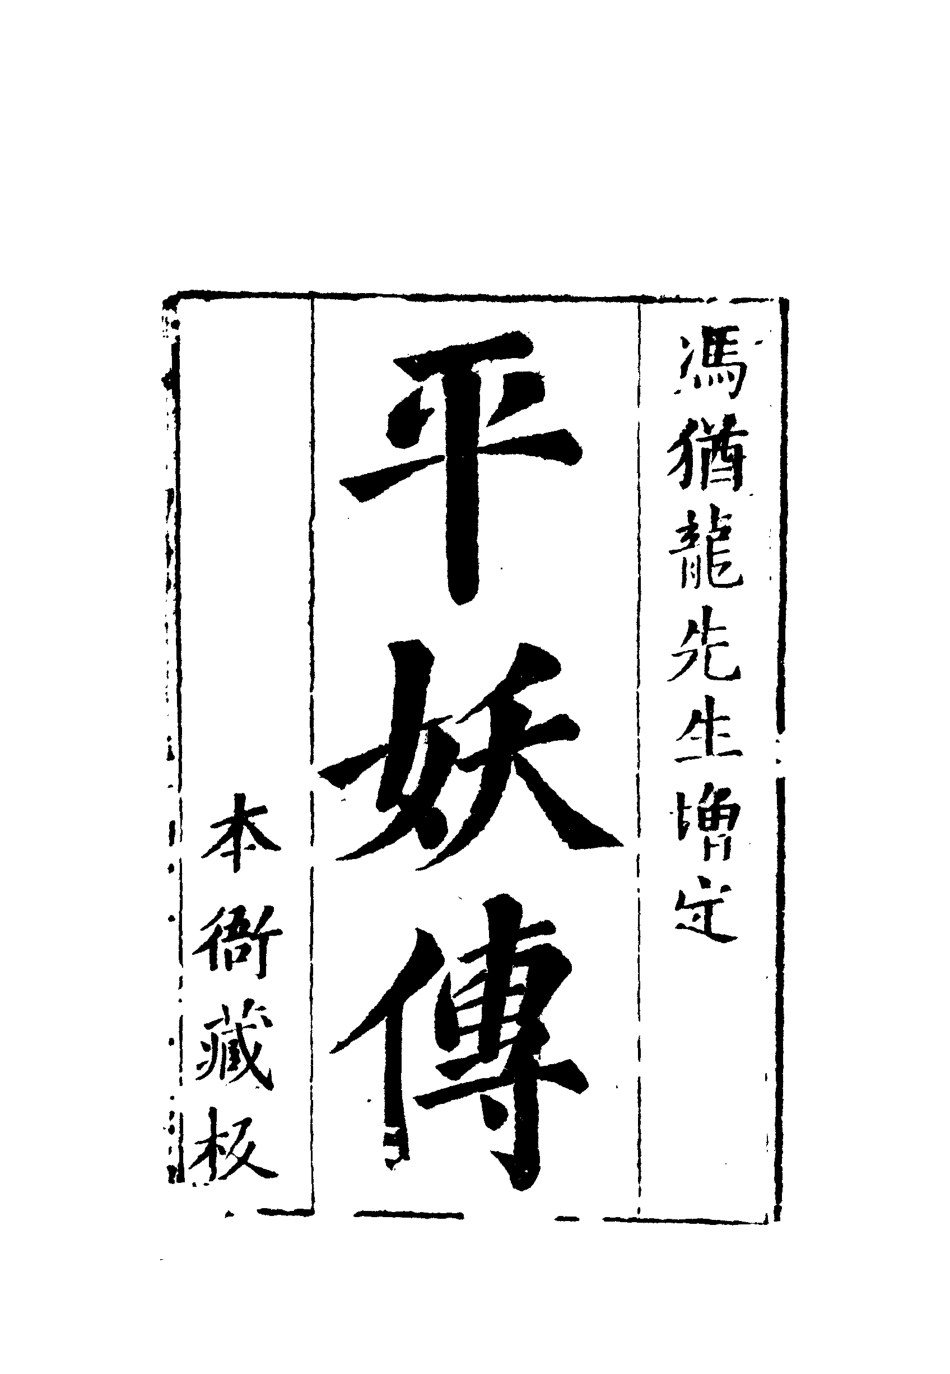 馮猶龍先生增定
平妖傳
本衙藏板